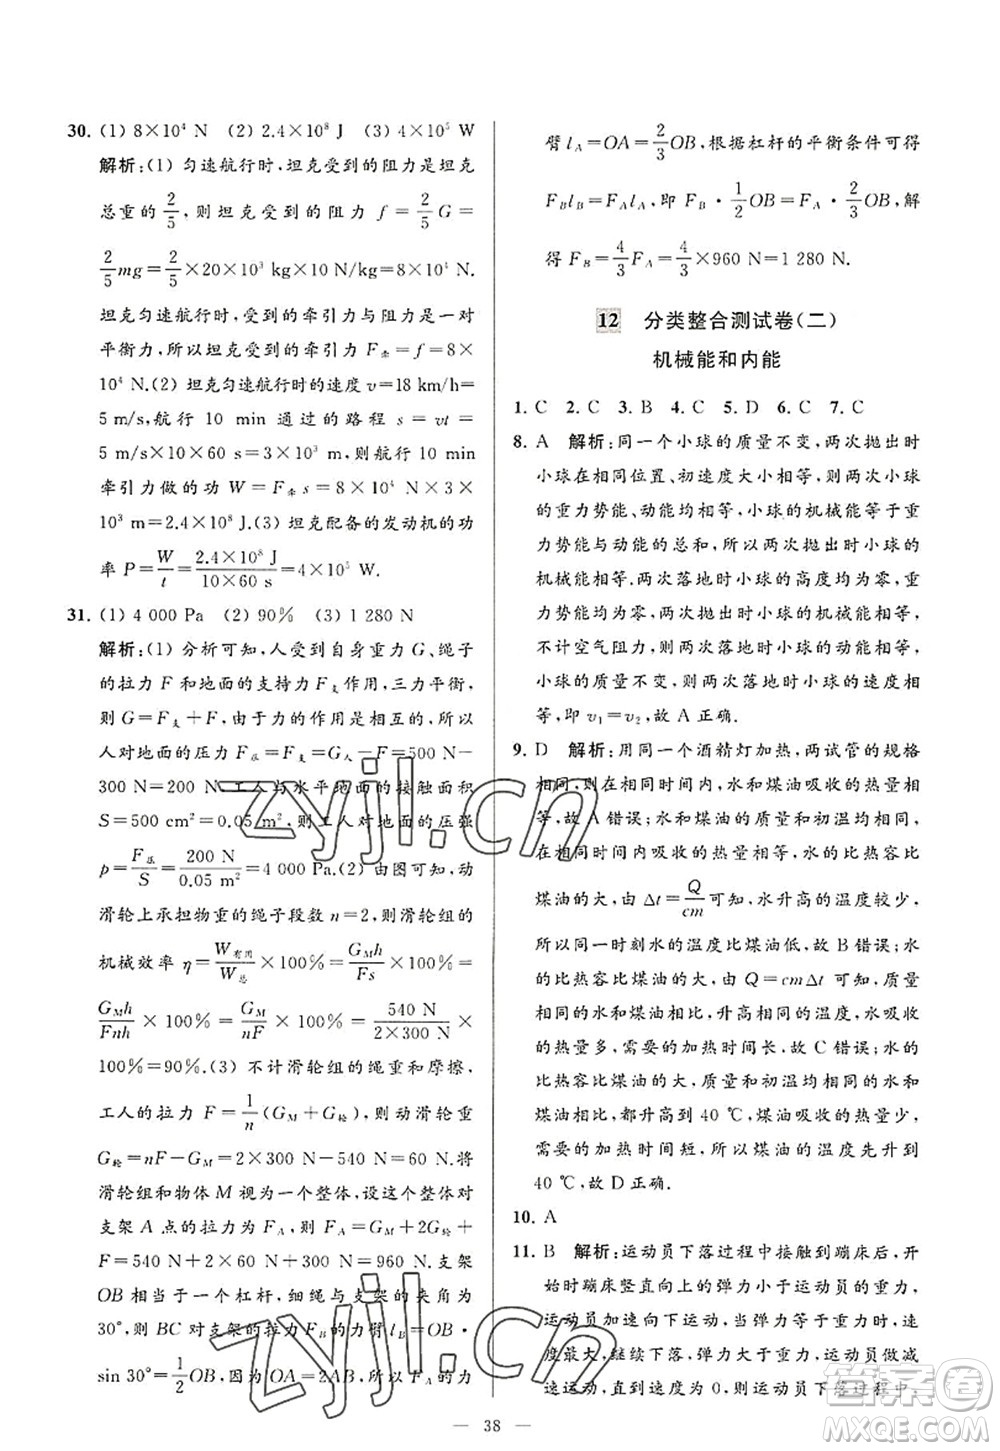 30. (1) 8×10⁴ N (2) 2.4×10⁸ J (3) 4×10⁵ W
解析:(1) 匀速航行时,坦克受到的阻力是坦克
总重的 2/5,则坦克受到的阻力 f = 2/5 G =
2/5 mg = 2/5×20×10³ kg×10 N/kg=8×10⁴ N.
坦克匀速航行时,受到的牵引力与阻力是一对
平衡力,所以坦克受到的牵引力 F牵 = f = 8×
10⁴ N.(2) 坦克匀速航行时的速度 v=18 km/h=
5 m/s,航行 10 min 通过的路程 s = vt =
5 m/s×10×60 s=3×10³ m,航行 10 min
牵引力做的功 W = F牵 s = 8×10⁴ N×3×
10³ m=2.4×10⁸ J.(3) 坦克配备的发动机的功
率 P = W/t = 2.4×10⁸ J/10×60 s = 4×10⁵ W.
31. (1) 4 000 Pa (2) 90% (3) 1 280 N
解析:(1) 分析可知,人受到自身重力 G、绳子
的拉力 F 和地面的支持力 F支 作用,三力平衡,
则 G=F支+F,由于力的作用是相互的,所以
人对地面的压力 F压=F支=G人-F=500 N-
300 N=200 N,工人与水平地面的接触面积
S=500 cm²=0.05 m²,则工人对地面的压强
p = F压/S = 200 N/0.05 m² = 4 000 Pa.(2) 由图可知,动
滑轮上承担物重的绳子段数 n=2,滑轮组的
机械效率 η = W有用/W总 ×100% = G_M h/Fs ×100% =
G_M h/Fnh × 100% = G_M/nF × 100% = 540 N/2×300 N ×
100%=90%.(3) 不计滑轮组的绳重和摩擦,
工人的拉力 F = 1/n (G_M+G轮),则动滑轮重
G轮=nF-G_M=2×300 N-540 N=60 N,将
滑轮组和物体 M 视为一个整体,设这个整体对
支架 A 点的拉力为 F_A,则 F_A=G_M+2G轮+
F=540 N+2×60 N+300 N=960 N.支架
OB 相当于一个杠杆,细绳与支架的夹角为
30°,则 BC 对支架的拉力 F_B 的力臂 l_B=OB·
sin 30°= 1/2 OB,又因为 OA=2AB,所以 F_A 的力
臂 l_A=OA= 2/3 OB,根据杠杆的平衡条件可得
F_B l_B=F_A l_A,即 F_B · 1/2 OB=F_A · 2/3 OB,解
得 F_B= 4/3 F_A= 4/3×960 N=1 280 N.
12 分类整合测试卷(二)
机械能和内能
1. C 2. C 3. B 4. C 5. D 6. C 7. C
8. A 解析:同一个小球的质量不变,两次抛出时
小球在相同位置、初速度大小相等,则两次小球
的重力势能、动能均相等,小球的机械能等于重
力势能与动能的总和,所以两次抛出时小球的
机械能相等;两次落地时小球的高度均为零,重
力势能均为零,两次抛出时小球的机械能相等,
不计空气阻力,则两次落地时小球的机械能相
等、动能相等,故两次落地时小球的速度相
等,即 v₁=v₂,故 A 正确.
9. D 解析:用同一个酒精灯加热,两试管的规格
相同,则在相同时间内,水和煤油吸收的热量相
等,故 A 错误;水和煤油的质量和初温均相同,
在相同时间内吸收的热量相等,水的比热容比
煤油的大,由 Δt = Q/cm 可知,水升高的温度较少,
所以同一时刻水的温度比煤油低,故 B 错误;水
的比热容比煤油的大,由 Q = cmΔt 可知,水的
质量和煤油的质量相同,升高相同的温度,水吸收
的热量多,需要的加热时间长,故 C 错误;水的
比热容比煤油的大,质量和初温均相同的水和
煤油相比,都升高到 40 ℃,煤油吸收的热量少,
需要的加热时间短,所以煤油的温度先升到
40 ℃,故 D 正确.
10. A
11. B 解析:运动员下落过程中接触到蹦床后,开
始时蹦床竖直向上的弹力小于运动员的重力,
运动员加速向下运动,当弹力等于重力时,速
度最大,继续下落,弹力大于重力,运动员做减
速运动,直到速度为 0,运动员下落过程中,
— 38 —
zyjl.cn
zyjl.cn
答案圈
MXQE.COM